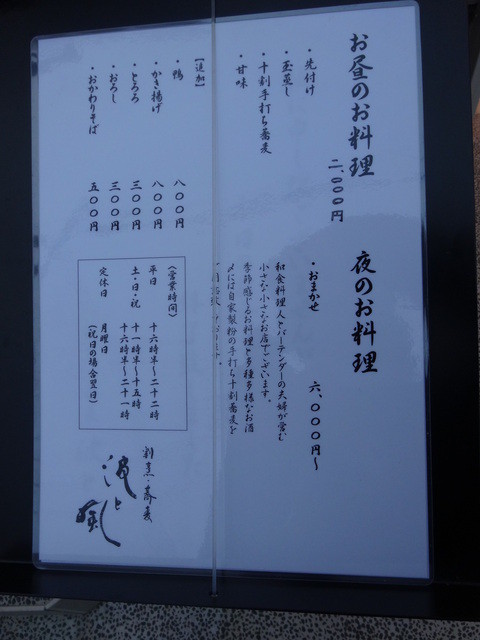 お昼のお料理
二、〇〇〇円
・先付け
・玉蒸し
・十割手打ち蕎麦
・甘味
【追加】
・鴨 八〇〇円
・かき揚げ 八〇〇円
・とろろ 三〇〇円
・おろし 三〇〇円
・おかわりそば 五〇〇円
夜のお料理
・おまかせ 六、〇〇〇円〜
和食料理人とバーテンダーの夫婦が営む
小さな小さなお店でございます。
季節感じるお料理と多種多様なお酒
〆には自家製粉の手打ち十割蕎麦を
《営業時間》
平日 十六時半〜二十二時
土・日・祝 十一時半〜十五時
十六時半〜二十一時
定休日 月曜日
(祝日の場合翌日)
割烹・蕎麦
波と風